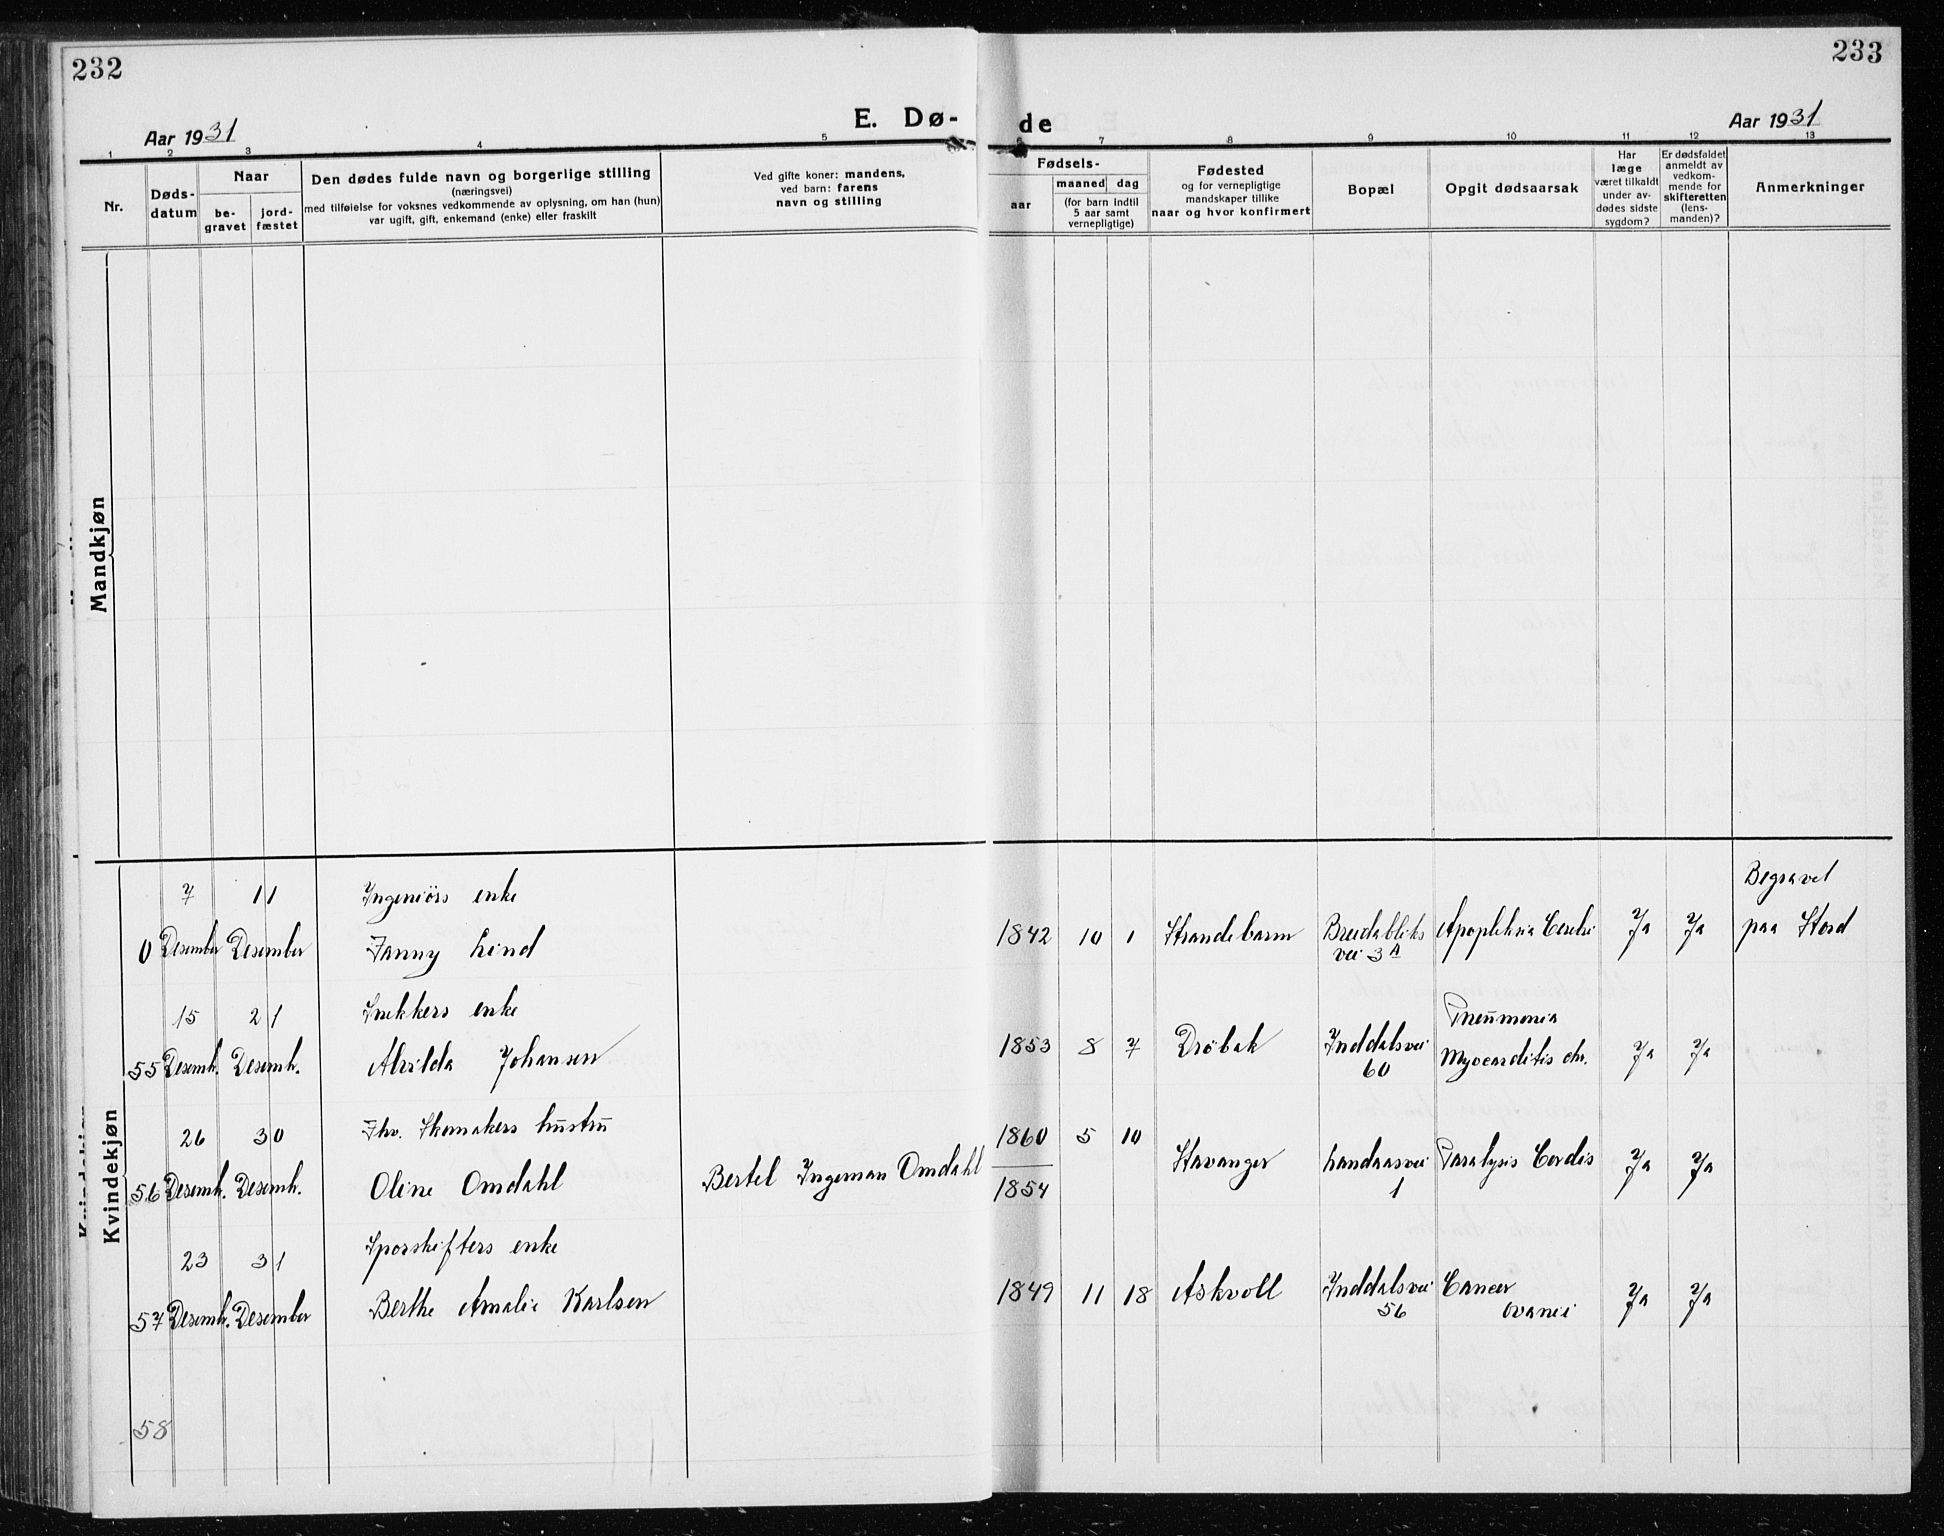 232
233
Aar 1931
E. Dø-
de
Aar 1931
1 2 3 4 5 6 7 8 9 10 11 12 13
Nr.
Døds-
datum
Naar
be-
gravet
jord-
fæstet
Den dødes fulde navn og borgerlige stilling
(næringsvei)
med tilføielse for voksnes vedkommende av oplysning, om han (hun)
var ugift, gift, enkemand (enke) eller fraskilt
Ved gifte koner: mandens,
ved barn: farens
navn og stilling
Fødsels-
aar
maaned dag
(for barn indtil
5 aar samt
vernepligtige)
Fødested
og for vernepligtige
mandskaper tillike
naar og hvor konfirmert
Bopæl
Opgit dødsaarsak
Har
læge
været tilkaldt
under av-
dødes sidste
sygdom?
Er dødsfaldet
anmeldt av
vedkom-
mende for
skifteretten
(lens-
manden)?
Anmerkninger
Mandkjøn
Kvindekjøn
7 11 Ingeniørs enke Begravet
0 Desember Desember Fanny Lind 1842 10 1 Strandebarm Breidabliks Apopleksia Cerebri Ja Ja paa Stord
vei 3A
15 21 Snekkers enke Pneumonia
55 Desemb. Desemb. Alvilda Johansen 1853 8 7 Drøbak Inddalsvei Myocarditis chr. Ja Ja
60
26 30 Fhv. Skomakers hustru 1860 5 10
56 Desemb. Desemb. Oline Omdahl Bertel Ingeman Omdahl 1854 Stavanger Landaasvei Paralysis Cordis Ja Ja
1
23 31 Sporskifters enke
57 Desemb. Desember Berthe Amalie Karlsen 1849 11 18 Askvoll Inddalsvei Cancer Ja Ja
56 ovarii
58